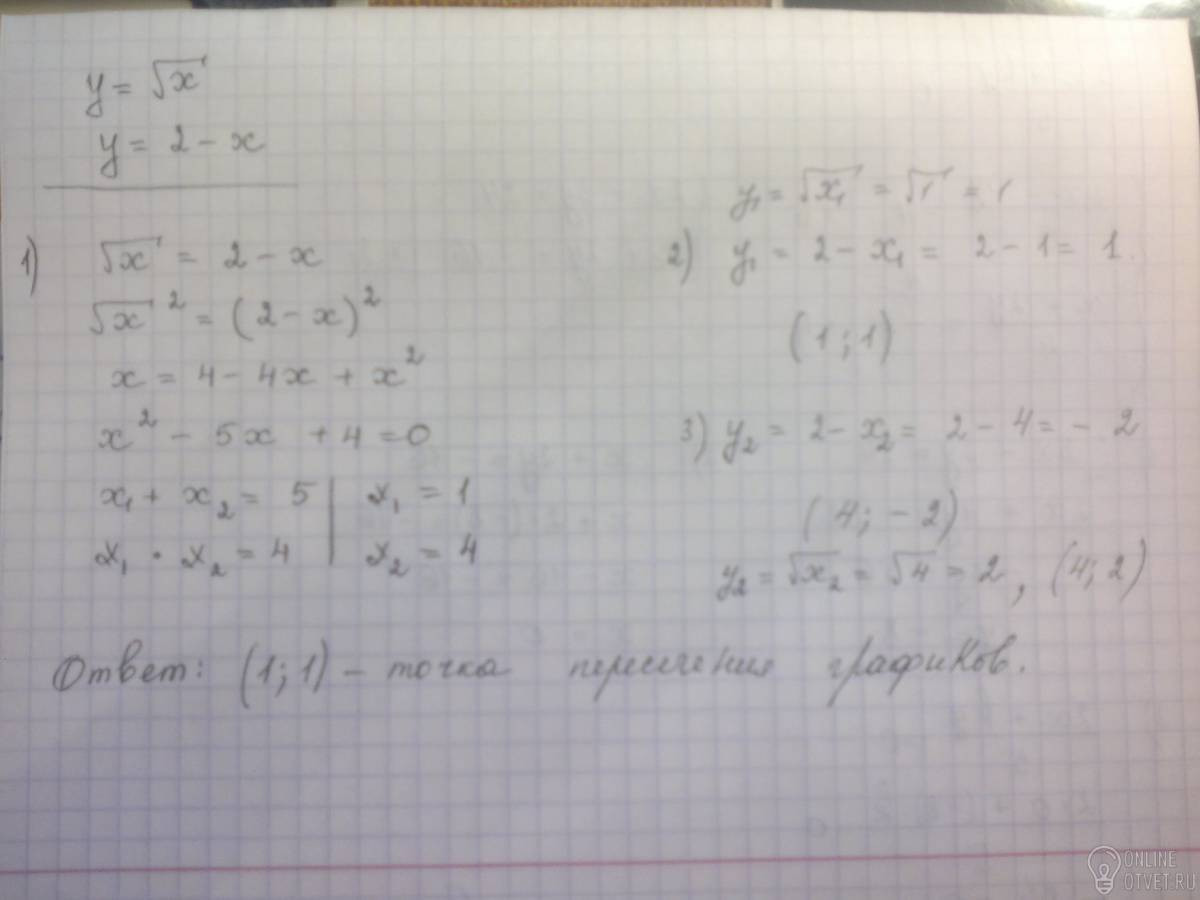 y = √x
y = 2 - x
1) √x = 2 - x
√x² = (2 - x)²
x = 4 - 4x + x²
x² - 5x + 4 = 0
x₁ + x₂ = 5 | x₁ = 1
x₁ · x₂ = 4 | x₂ = 4
y₁ = √x₁ = √1 = 1
2) y₁ = 2 - x₁ = 2 - 1 = 1.
(1; 1)
3) y₂ = 2 - x₂ = 2 - 4 = - 2
(4; - 2)
y₂ = √x₂ = √4 = 2, (4; 2)
Ответ: (1; 1) - точка пересечения графиков.
ONLINE
OTVET.RU